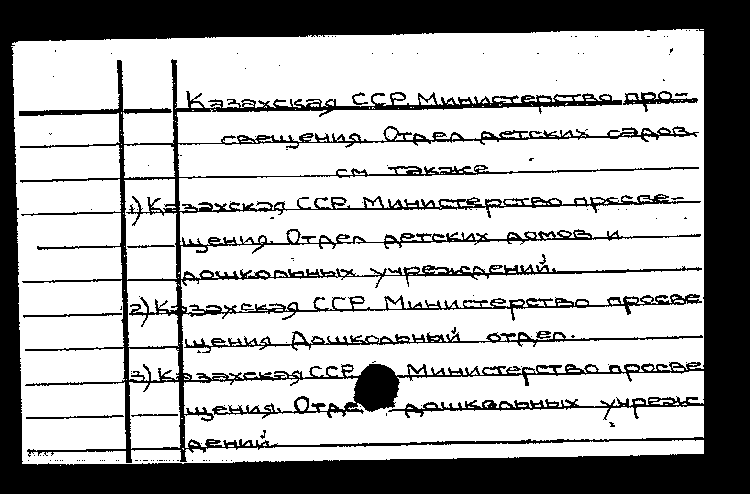 Казахская ССР. Министерство про-
свещения. Отдел детских садов.
см также
1) Казахская ССР. Министерство просве-
щения. Отдел детских домов и
дошкольных учреждений.
2) Казахская ССР. Министерство просве
щения Дошкольный отдел.
3) Казахская ССР Министерство просве
щения. Отдел дошкольных учреж-
дений.